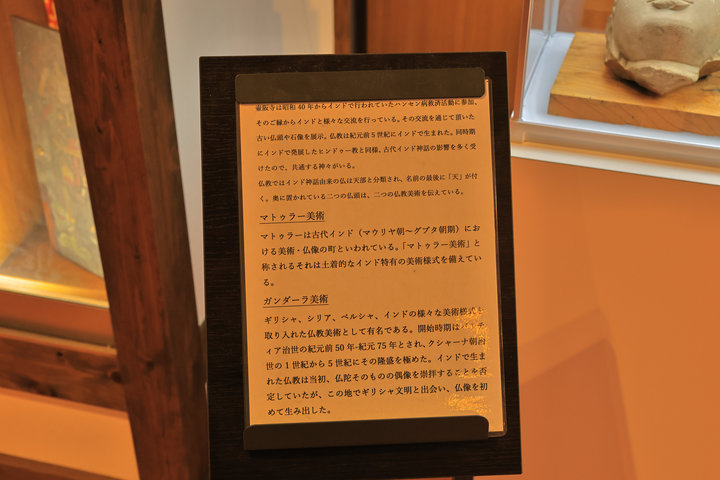 壷阪寺は昭和 40 年からインドで行われていたハンセン病救済活動に参加、
そのご縁からインドと様々な交流を行っている。その交流を通じて頂いた
古い仏頭や石像を展示。仏教は紀元前5世紀にインドで生まれた。同時期
にインドで発展したヒンドゥー教と同様、古代インド神話の影響を多く受
けたので、共通する神々がいる。
仏教ではインド神話由来の仏は天部と分類され、名前の最後に「天」が付
く。奥に置かれている二つの仏頭は、二つの仏教美術を伝えている。
マトゥラー美術
マトゥラーは古代インド（マウリヤ朝～グプタ朝期）にお
ける美術・仏像の町といわれている。「マトゥラー美術」と
称されるそれは土着的なインド特有の美術様式を備えてい
る。
ガンダーラ美術
ギリシャ、シリア、ペルシャ、インドの様々な美術様式を
取り入れた仏教美術として有名である。開始時期はパルティ
ィア治世の紀元前 50 年-紀元 75 年とされ、クシャーナ朝治
世の 1 世紀から 5 世紀にその隆盛を極めた。インドで生ま
れた仏教は当初、仏陀そのものの偶像を崇拝することを否
定していたが、この地でギリシャ文明と出会い、仏像を初
めて生み出した。